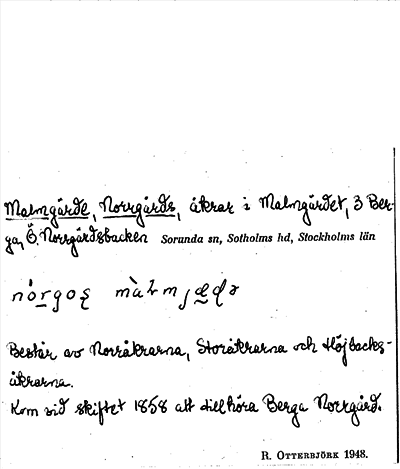 Malmgärde, Norrgårds, åkrar i Malmgärdet, 3 Ber-
ga, Ö. Norrgårdsbacken Sorunda sn, Sotholms hd, Stockholms län
Består av Norråkrarna, Storåkrarna och Höjbacks-
åkrarna.
Kom vid skiftet 1858 att tillhöra Berga Norrgård.
R. OTTERBJÖRK 1948.